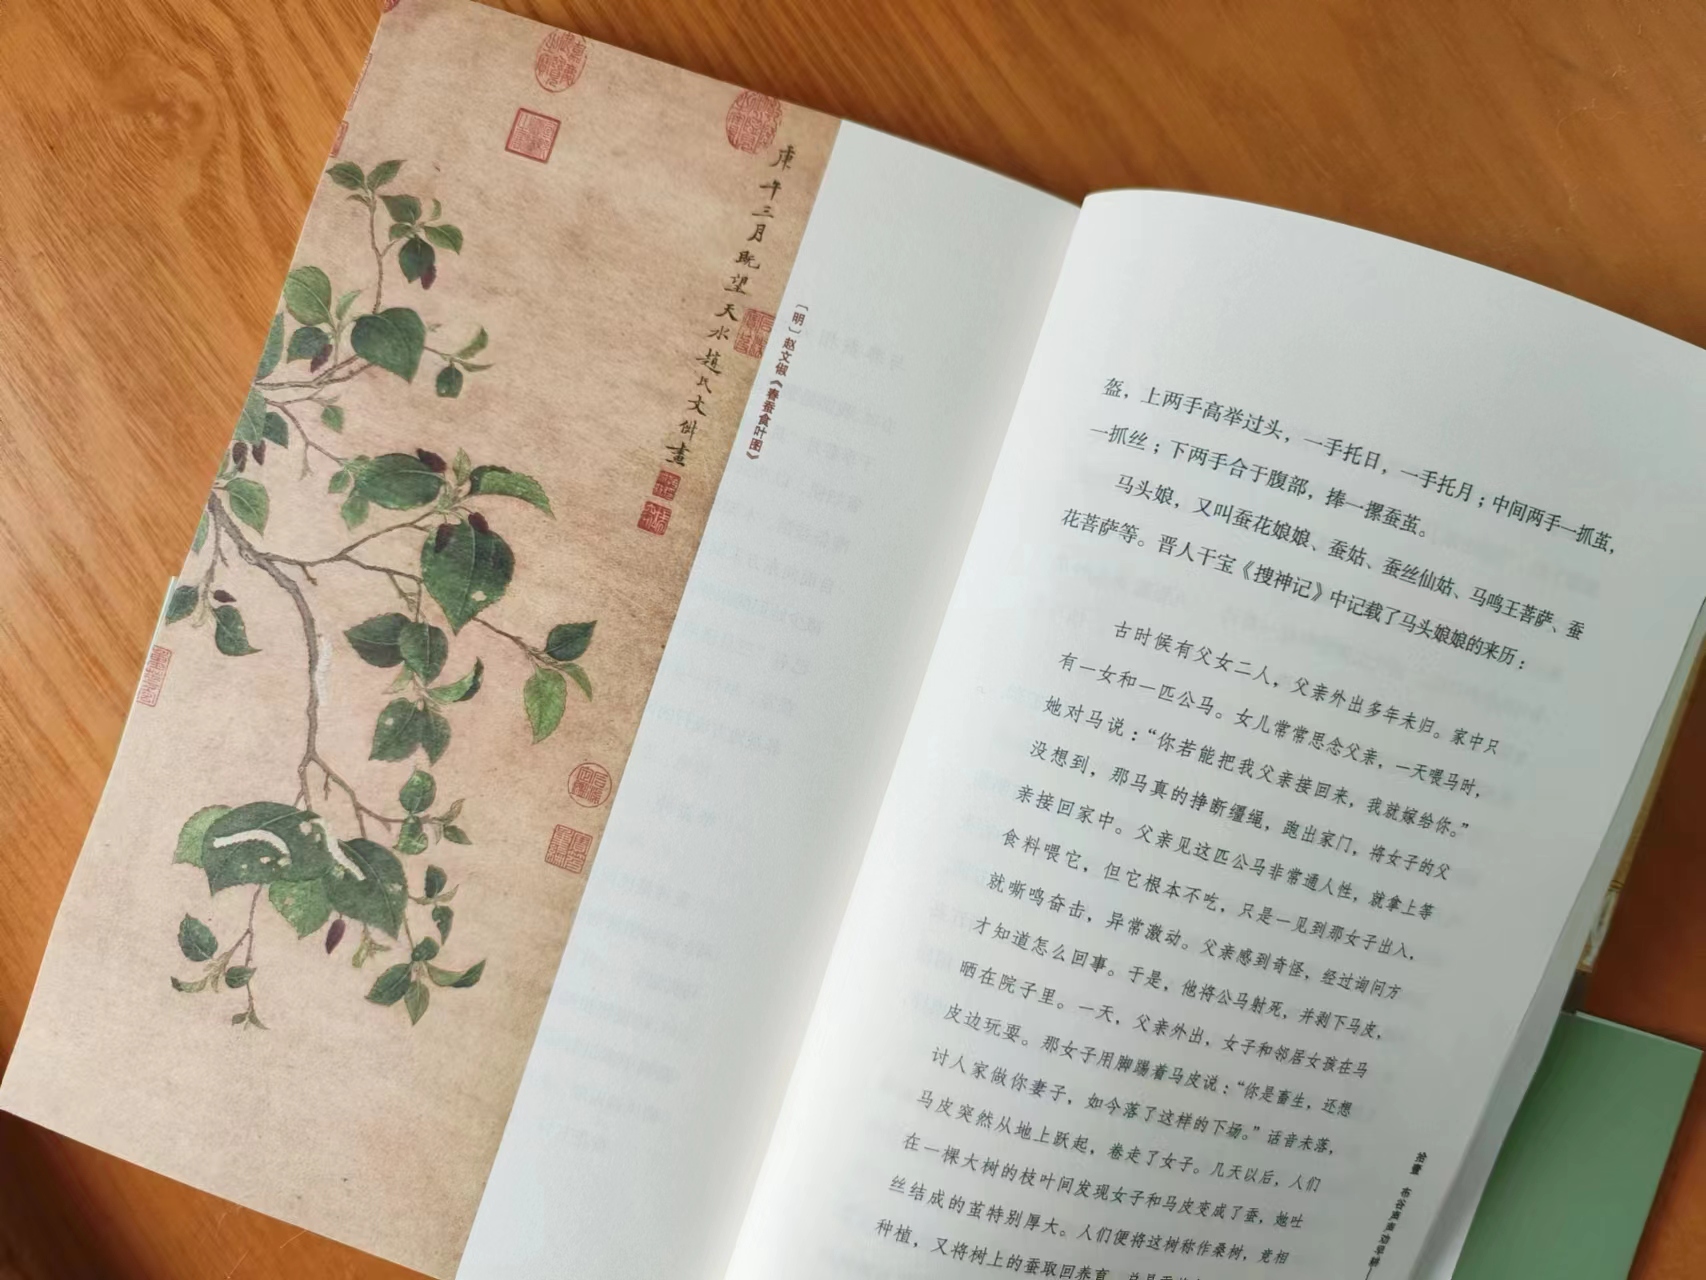 庚午三月既望天水趙氏文俶畫
〔明〕赵文俶《春蚕食叶图》
盔，上两手高举过头，一手托日，一手托月；中间两手一抓茧，
一抓丝；下两手合于腹部，捧一摞蚕茧。
马头娘，又叫蚕花娘娘、蚕姑、蚕丝仙姑、马鸣王菩萨、蚕
花菩萨等。晋人干宝《搜神记》中记载了马头娘娘的来历：
古时候有父女二人，父亲外出多年未归。家中只
有一女和一匹公马。女儿常常思念父亲，一天喂马时，
她对马说：“你若能把我父亲接回来，我就嫁给你。”
没想到，那马真的挣断缰绳，跑出家门，将女子的父
亲接回家中。父亲见这匹公马非常通人性，就拿上等
食料喂它，但它根本不吃，只是一见到那女子出入，
就嘶鸣奋击，异常激动。父亲感到奇怪，经过询问方
才知道怎么回事。于是，他将公马射死，并剥下马皮，
晒在院子里。一天，父亲外出，女子和邻居女孩在马
皮边玩耍。那女子用脚踢着马皮说：“你是畜生，还想
讨人家做你妻子，如今落了这样的下场。”话音未落，
马皮突然从地上跃起，卷走了女子。几天以后，人们
在一棵大树的枝叶间发现女子和马皮变成了蚕，她吐
丝结成的茧特别厚大。人们便将这树称作桑树，竞相
种植，又将树上的蚕取回养育
布谷声声劝早耕